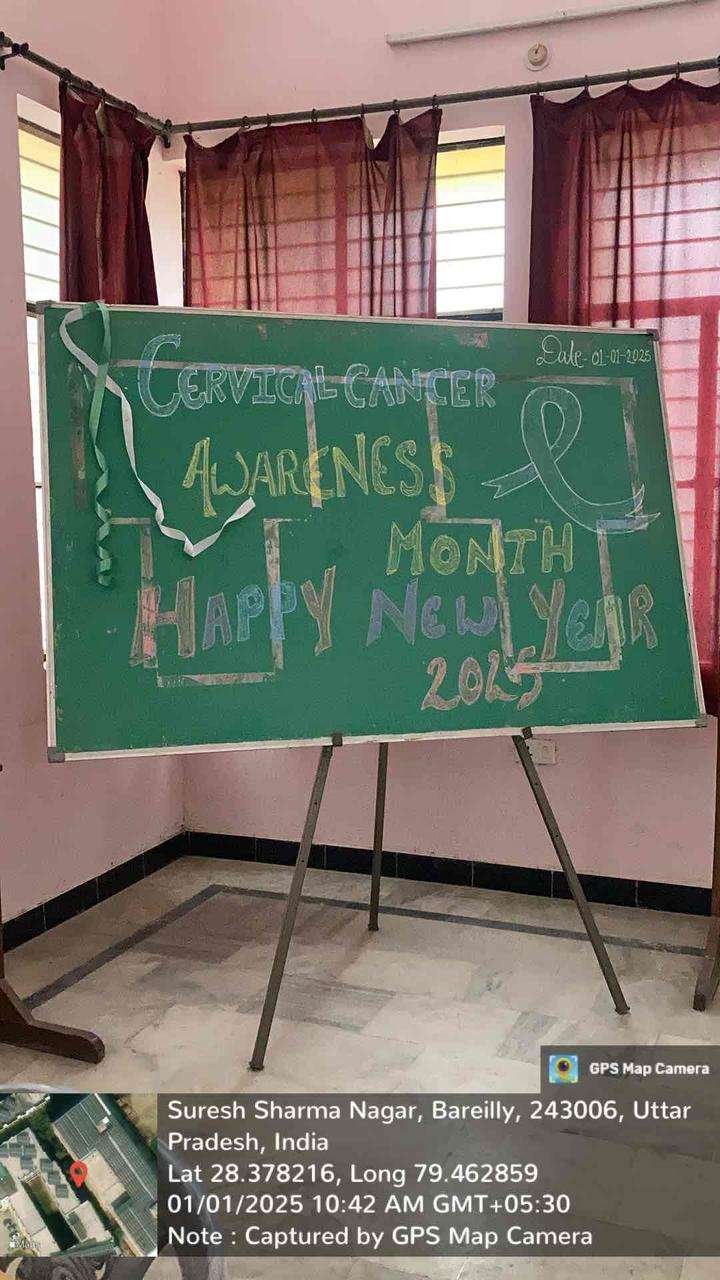 Date- 01-01-2025
CERVICAL CANCER
AWARENESS
MONTH
HAPPY NEW YEAR
2025
GPS Map Camera
Suresh Sharma Nagar, Bareilly, 243006, Uttar
Pradesh, India
Lat 28.378216, Long 79.462859
01/01/2025 10:42 AM GMT+05:30
Note : Captured by GPS Map Camera